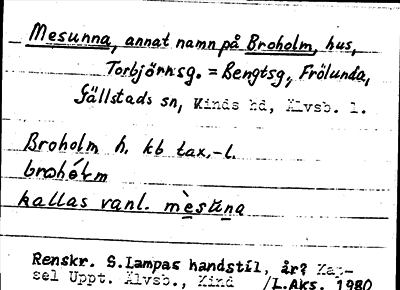 Mesunna, annat namn på Broholm, hus,
Torbjörnsg. = Bengtsg., Frölunda,
Gällstads sn, Kinds hd, Älvsb. l.
Broholm h. kb tax.-l.
brohólm
kallas vanl. mèsuna
Renskr. S. Lampas handstil, år? Kap-
sel Uppt. Älvsb., Kind /L.Aks. 1980